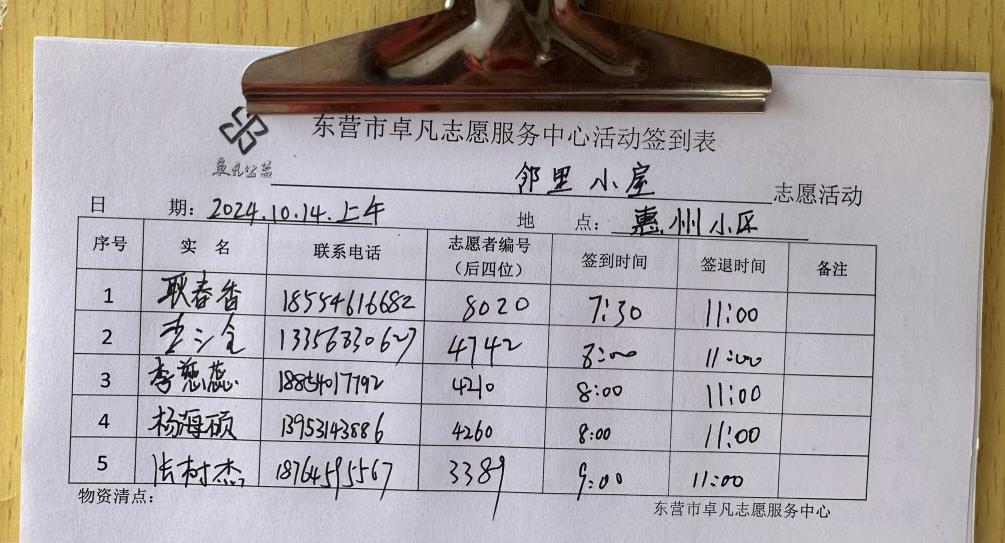 东营市卓凡志愿服务中心活动签到表
卓凡公益
邻里小屋 志愿活动
日 期：2024.10.14.上午 地 点：惠州小区
序号 实 名 联系电话 志愿者编号（后四位） 签到时间 签退时间 备注
1 耿春香 18554616682 8020 7:30 11:00
2 13356830627 4742 8:00 11:00
3 李慧蕊 18854017792 4210 8:00 11:00
4 杨海硕 13953143886 4260 8:00 11:00
5 树杰 18764595567 3389 9:00 11:00
物资清点：
东营市卓凡志愿服务中心